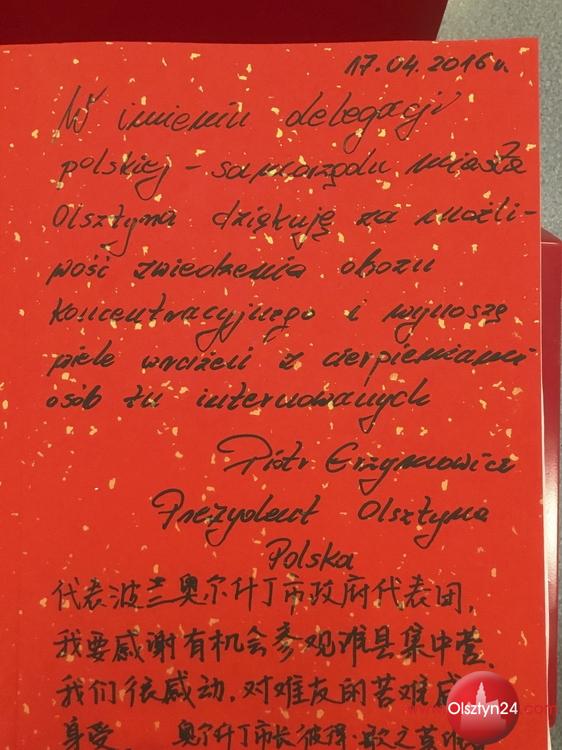 17.04.2016 r.
W imieniu delegacji
polskiej - samorządu miasta
Olsztyna dziękuję za możli-
wość zwiedzenia obozu
koncentracyjnego i wynoszę
wiele wrażeń z cierpieniami
osób tu internowanych
Piotr Grzymowicz
Prezydent Olsztyna
Polska
代表波兰奥尔什丁市政府代表团,
我要感谢有机会参观潍县集中营.
我们很感动.对难友的苦难感
身受. 奥尔什丁市长彼得·
Olsztyn24